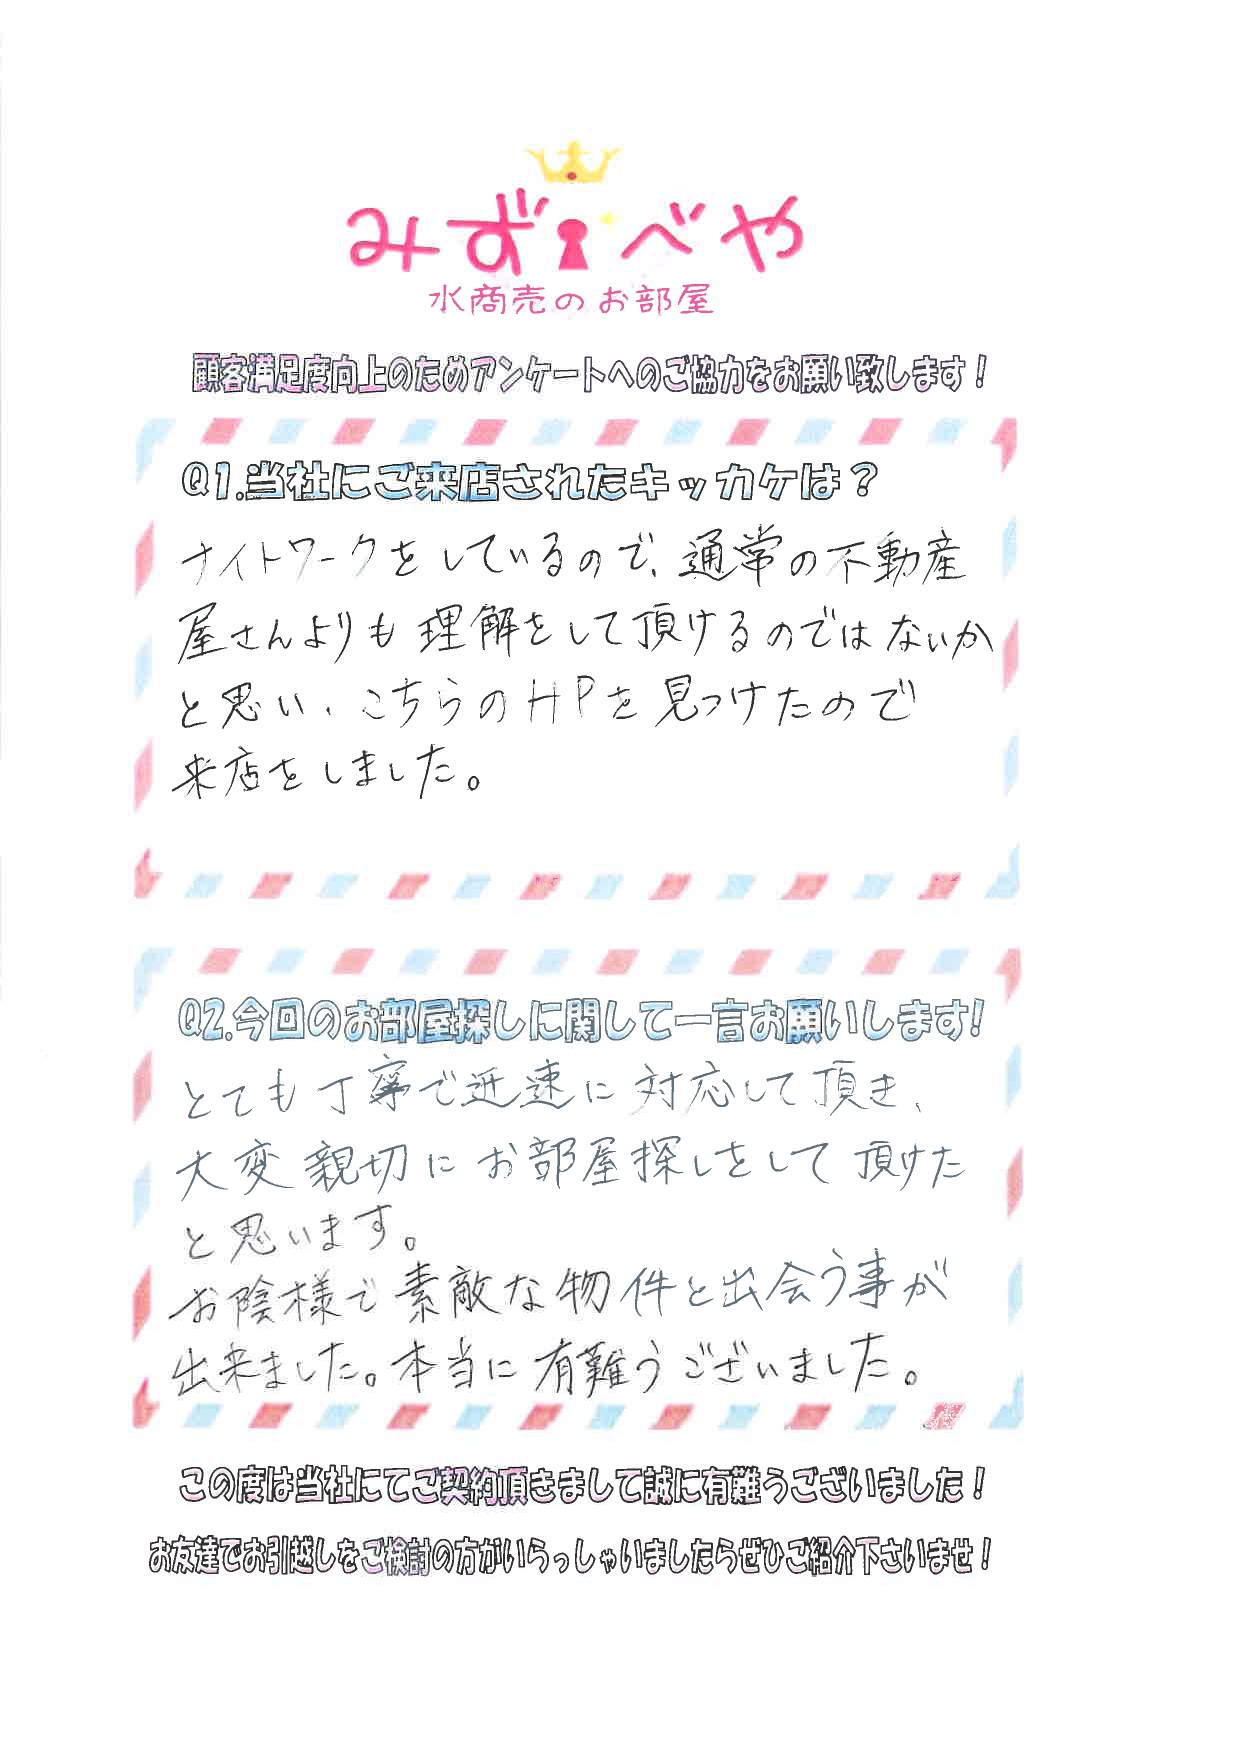 みずべや
水商売のお部屋
顧客満足度向上のためアンケートへのご協力をお願い致します！
Q1.当社にご来店されたキッカケは？
ナイトワークをしているので、通常の不動産
屋さんよりも理解をして頂けるのではないか
と思い、こちらのHPを見つけたので
来店をしました。
Q2.今回のお部屋探しに関して一言お願いします!
とても丁寧で迅速に対応して頂き、
大変親切にお部屋探しをして頂けた
と思います。
お陰様で素敵な物件と出会う事が
出来ました。本当に有難うございました。
この度は当社にてご契約頂きまして誠に有難うございました！
お友達でお引越しをご検討の方がいらっしゃいましたらぜひご紹介下さいませ！